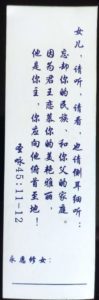 女儿，请听，请看，也请侧耳细听：
忘却你的民族，和你父的家庭。
因为君王恋慕你的美艳雅丽，
他是你主，你应向他俯首至地！
圣咏45：11-12
永愿修女：